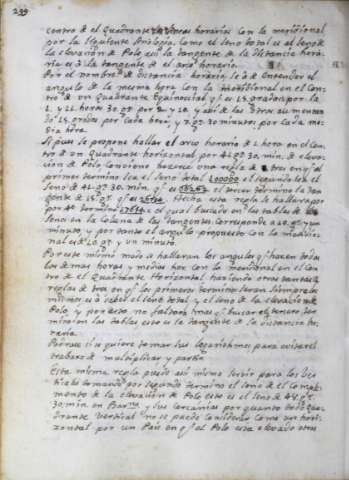 299
centro de el Quadrante las lineas horarias con la meridional
por la siguiente Analogia. Como el seno total es al seno de
la elevacion de Polo assi la tangente de la distancia hora-
ria es à la tangente de el arco horario.
Por el nombre de distancia horaria se à de entender el
angulo de la mesma hora con la Meridional en el cen-
tro de un Quadrante Equinoccial qe es 15 grados por la
1. y 11 hora 30 gs por 2 y 10, y assi de las otras aumentan-
do 15 grados por cada hora y 7 gs 30 minutos por cada me-
dia hora.
Si pues se propone hallar el arco horario de 1 hora en el cen-
tro de un Quadrante horizontal por 41 gs 30. min. de eleva-
cion de Polo conviene hazerse una regla de tres en qe el
primer termino sea el seno total 100000 el segundo sea el
seno de 41. gs 30. min. qe es 66262 el tercer termino la tan-
gente de 15 gs qe es 26795 Hecha esta regla se hallara
por 4o termino el qual buscado en las tablas de los
senos en la Coluna de las tangentes corresponde a 10. gs y un
minuto, y por tanto el angulo propuesto con la meridio-
nal es de 10 gs y un minuto.
Por este mismo modo se hallaran los angulos qe hazen todas
las demas horas y medias horas con la meridional en el cen-
tro de el Quadrante Horizontal haziendo otras tantas
reglas de tres en qe los primeros terminos seran siempre los
mismos, es à saber el seno total, y el seno de la elevacion de
Polo, y por esto no faltará mas qe buscar el tercero ter-
mino en las tablas esto es la tangente de la distancia ho-
raria.
Podrase si se quiere tomar los logarithmos para evitar el
trabajo de multiplicar y partir.
Esta misma regla puede assi mismo servir para los Ver-
ticales tomando por segundo termino el seno del comple-
mento de la elevacion de Polo esto es el seno de 48. gs
30. min. en Barna y sus cercanias por quanto todo qua-
drante vertical no se puede considerar como un hori-
zontal por un Pais en qe el Polo esta elevado otros